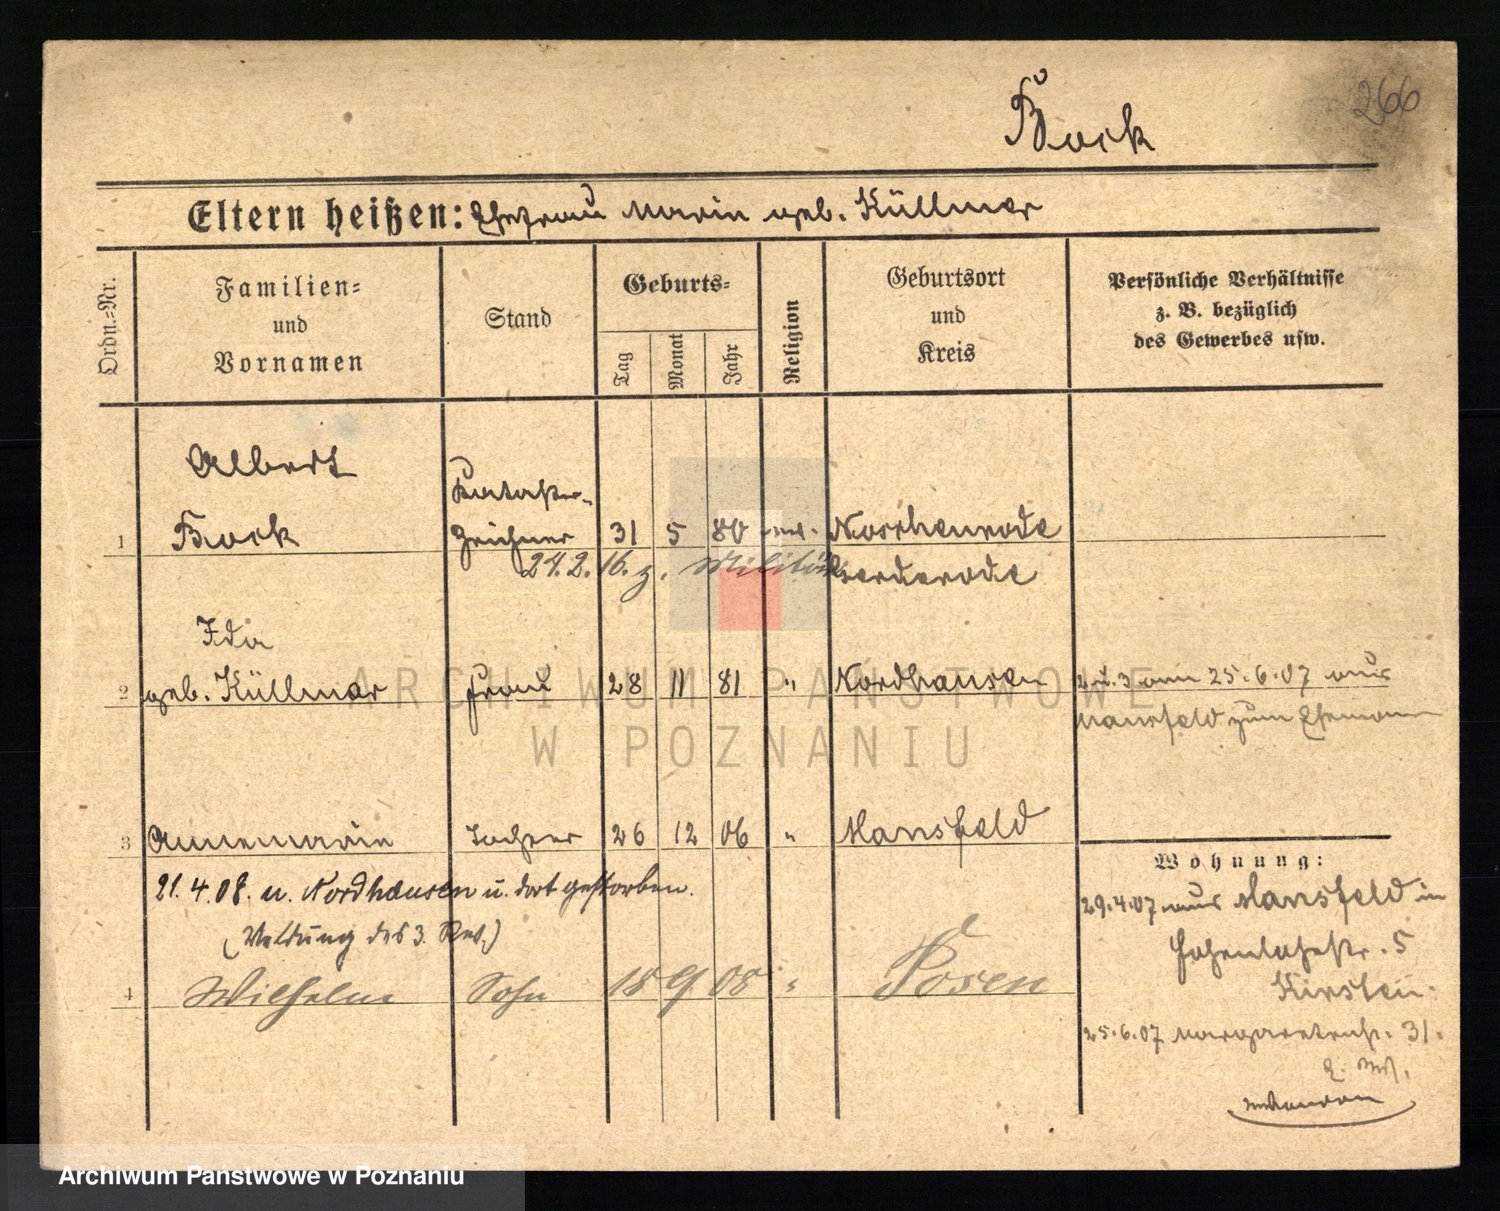 266
Bock
Eltern heißen: Ehefrau Marie geb. Küllmer
Ordn.=Nr.
Familien=
und
Vornamen
Stand
Geburts=
Tag
Monat
Jahr
Religion
Geburtsort
und
Kreis
Persönliche Verhältnisse
z. B. bezüglich
des Gewerbes usw.
Albert
Kataster-
1 Bock zeichner 31 5 80 Noschenrode
24.2.16. z. Militär
Ida
2 geb. Küllmer Frau 28 11 81 " Nordhausen 2 u. 3 am 25.6.07 aus
Mansfeld zum Ehemann
3 Annemarie Tochter 26 12 06 " Mansfeld
21.4.08. n. Nordhausen u. dort gestorben.
(Meldung des 3. Rev.)
4 Wilhelm Sohn 18 9 08 " Posen
Wohnung:
29.4.07 aus Mansfeld in
Hohenlohestr. 5
Kirstein.
25.6.07 Margaretenstr. 31.
ARCHIWUM PAŃSTWOWE
W POZNANIU
Archiwum Państwowe w Poznaniu